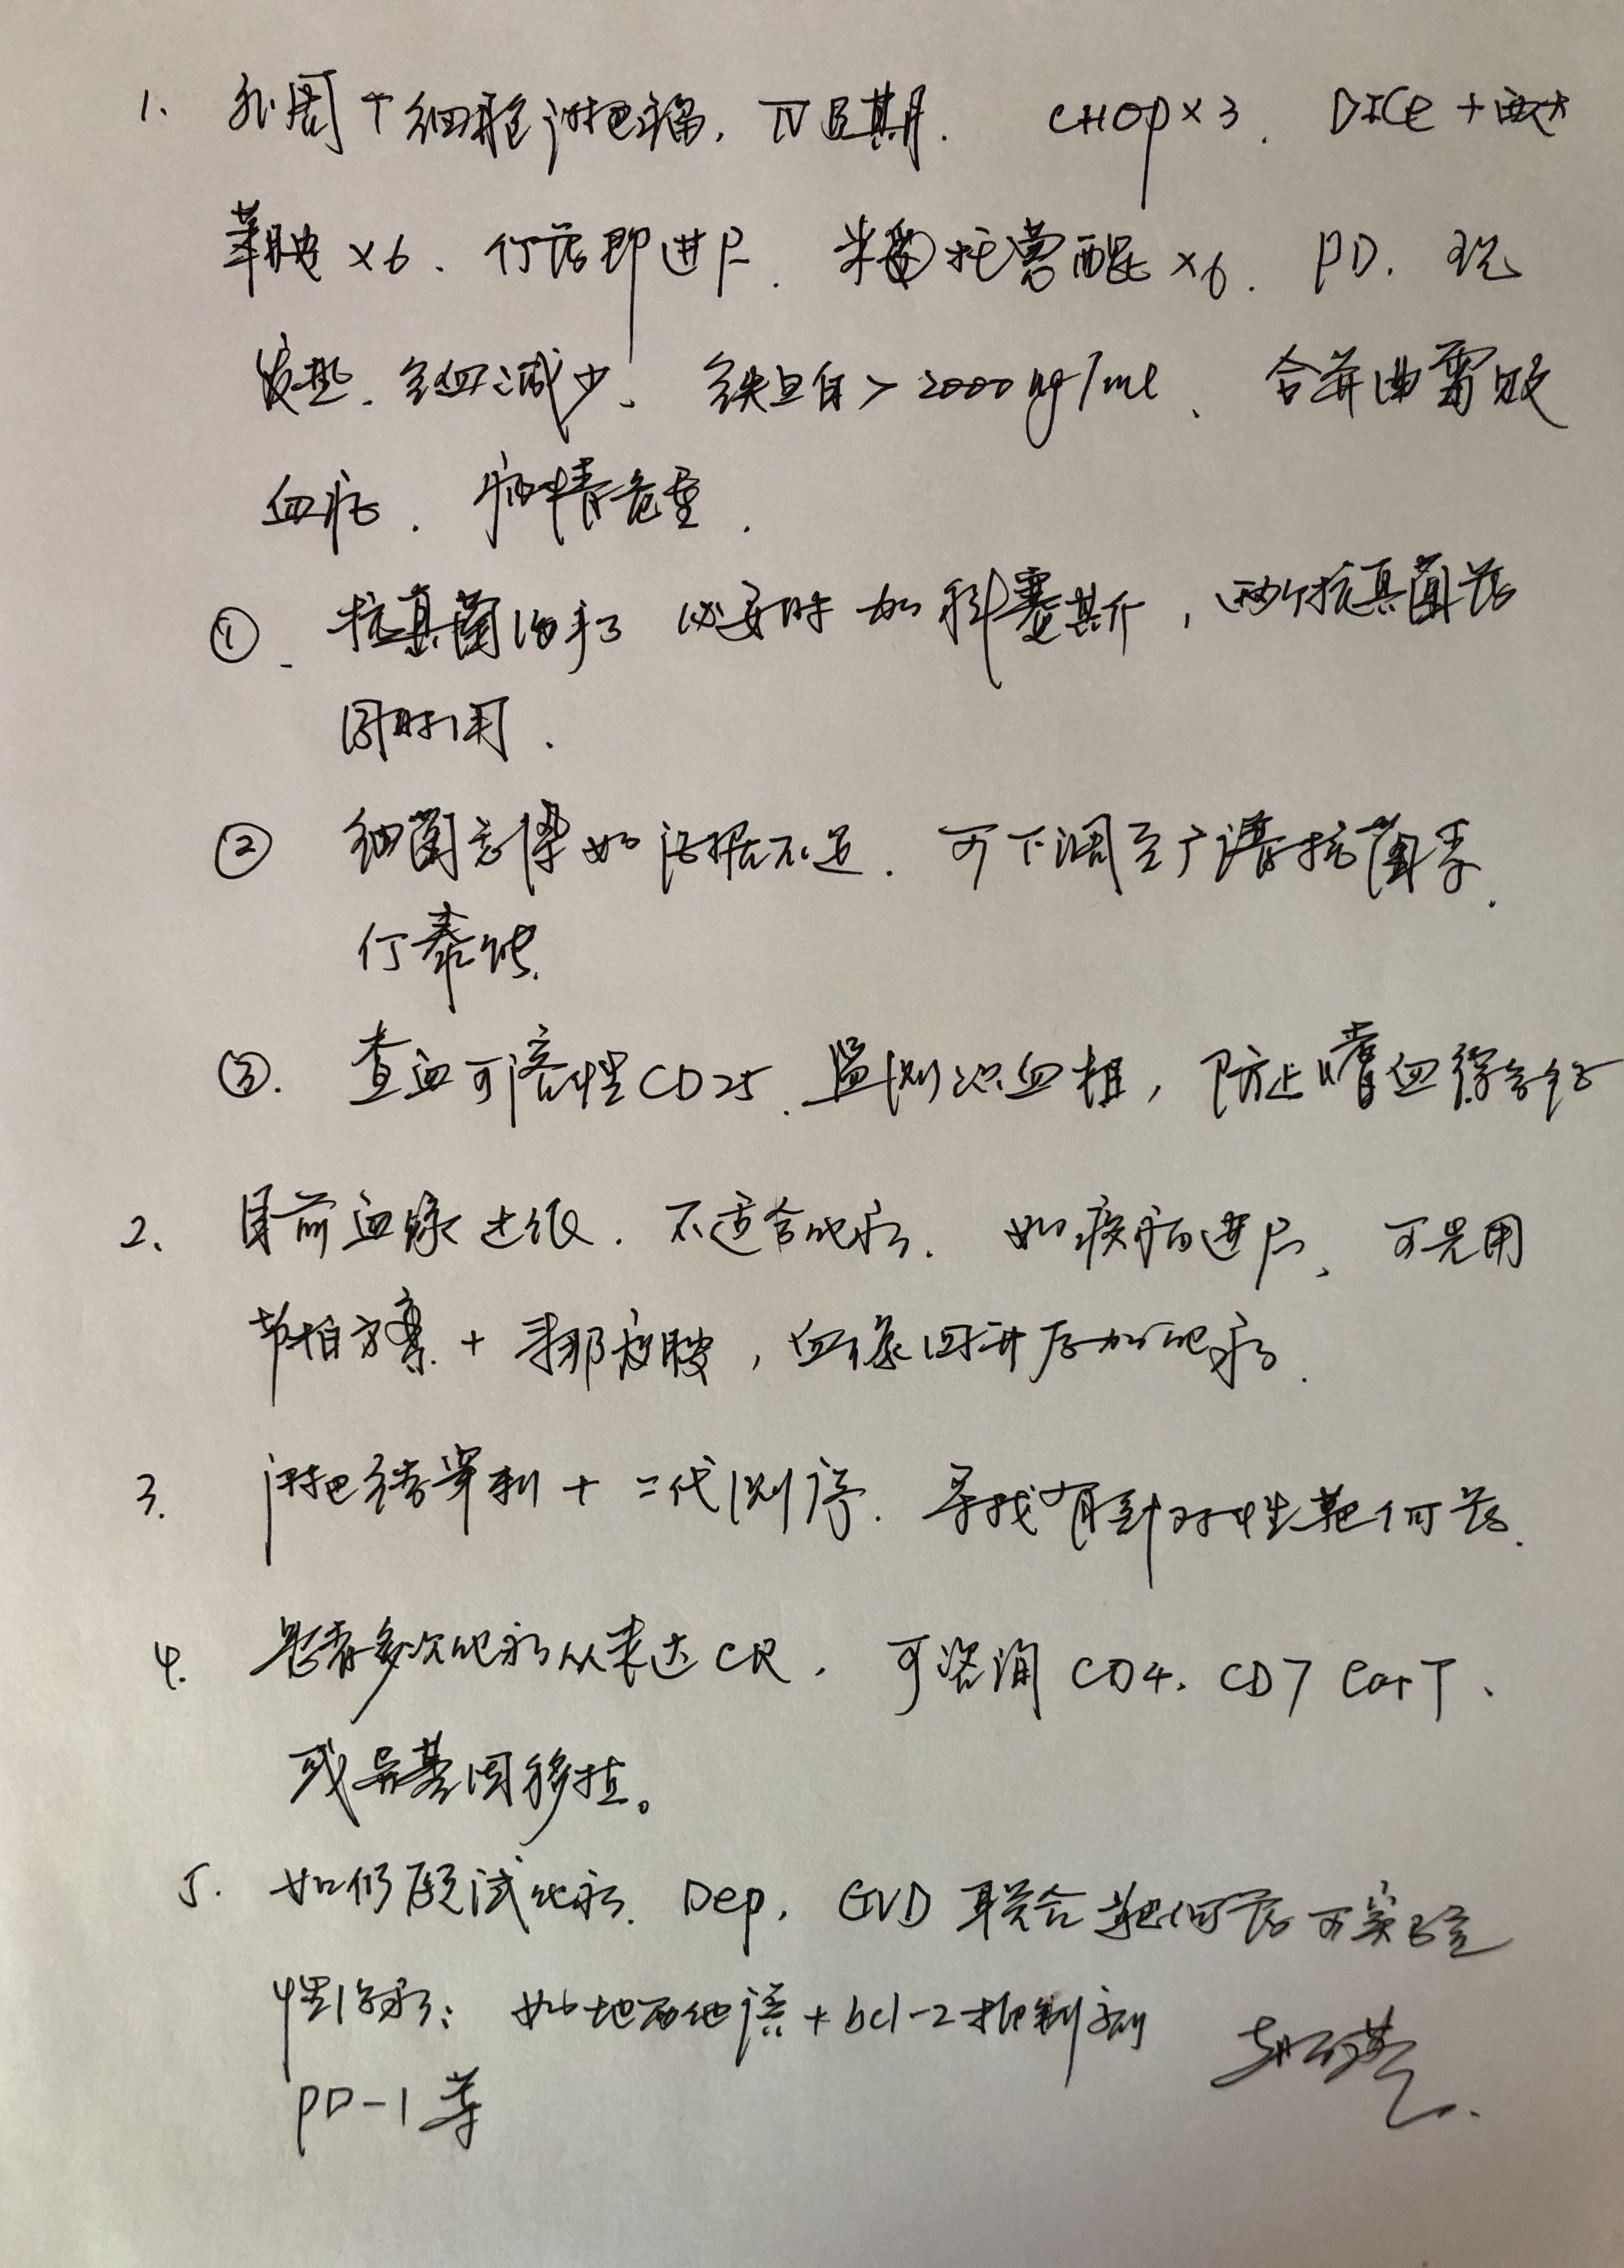 1. 外周T细胞淋巴瘤. IV B期. CHOP×3. DICE+西达
苯胺×6. 停药即进展. 米托蒽醌×6. PD. 现
发热. 全血减少. 铁蛋白>2000ng/ml、合并曲霉败
血症. 病情危重.
①. 抗真菌治疗 必要时加科赛斯, 两个抗真菌药
同时用.
② 细菌感染如证据不足. 可下调至广谱抗菌素.
停泰能.
③. 查血可溶性CD25. 监测血相, 防止嗜血综合征
2、目前血象过低. 不适合化疗. 如疾病进展、可先用
节拍方案+来那度胺, 血象回升后加化疗.
3. 淋巴结穿刺+二代测序. 寻找有针对性靶向药.
4. 患者多次化疗从未达CR. 可咨询CD4. CD7 CarT、
或异基因移植。
5. 如仍愿试化疗. Dep. GVD 联合靶向药可实验
性治疗: 如地西他滨+bcl-2抑制剂
PD-1等